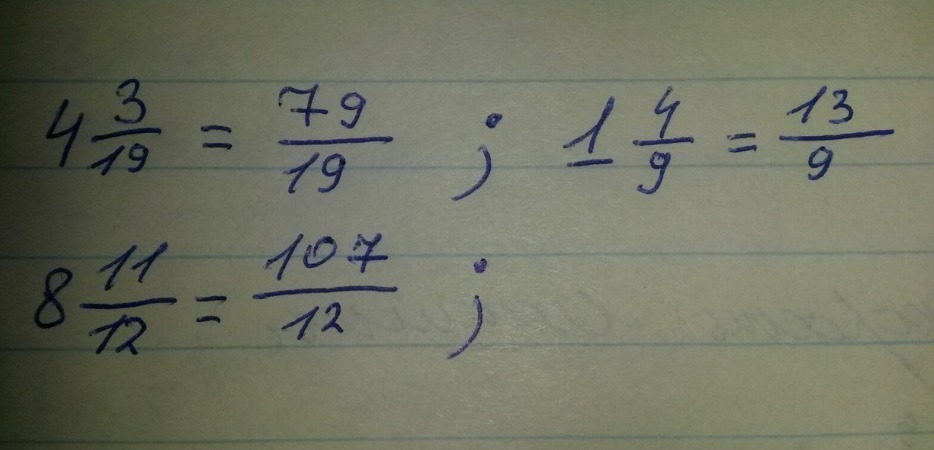 4 3/19 = 79/19 ; 1 4/9 = 13/9
8 11/12 = 107/12 ;